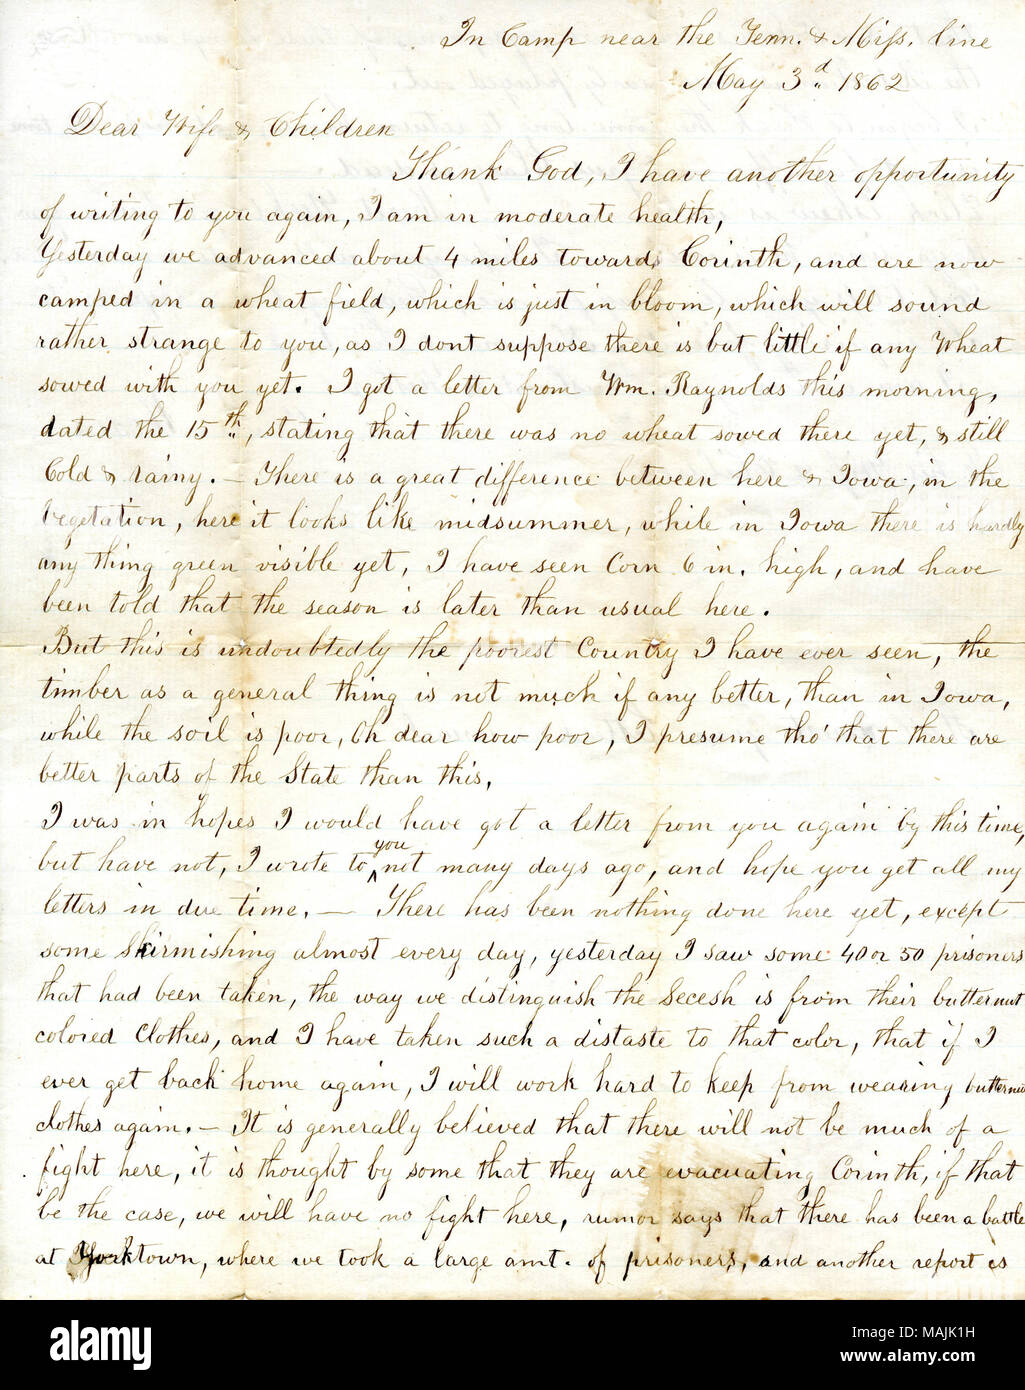 In Camp near the Tenn. & Miss. line
May 3d. 1862
Dear Wife & Children
Thank God, I have another opportunity
of writing to you again, I am in moderate health,
Yesterday we advanced about 4 miles towards Corinth, and are now
camped in a wheat field, which is just in bloom, which will sound
rather strange to you, as I dont suppose there is but little if any Wheat
sowed with you yet. I got a letter from Wm. Raynolds this morning,
dated the 15th., stating that there was no wheat sowed there yet, & still
Cold & rainy. — There is a great difference between here & Iowa, in the
Vegetation, here it looks like midsummer, while in Iowa there is hardly
any thing green visible yet, I have seen Corn 6 in. high, and have
been told that the season is later than usual here.
But this is undoubtedly the poorest Country I have ever seen, the
timber as a general thing is not much if any better, than in Iowa,
while the soil is poor, Oh dear how poor, I presume tho' that there are
better parts of the State than this,
I was in hopes I would have got a letter from you again by this time,
but have not, I wrote to you not many days ago, and hope you get all my
letters in due time. — There has been nothing done here yet, except
some Skirmishing almost every day, yesterday I saw some 40 or 50 prisoners
that had been taken, the way we distinguish the Secesh is from their butternut
colored Clothes, and I have taken such a distaste to that color, that if I
ever get back home again, I will work hard to keep from wearing butternut
clothes again. — It is generally believed that there will not be much of a
fight here, it is thought by some that they are evacuating Corinth, if that
be the case, we will have no fight here, rumor says that there has been a battle
at Yorktown, where we took a large amt. of prisoners, and another report is
alamy
a
alamy
a
a
alamy
a
Image ID: MAJK1H
www.alamy.com